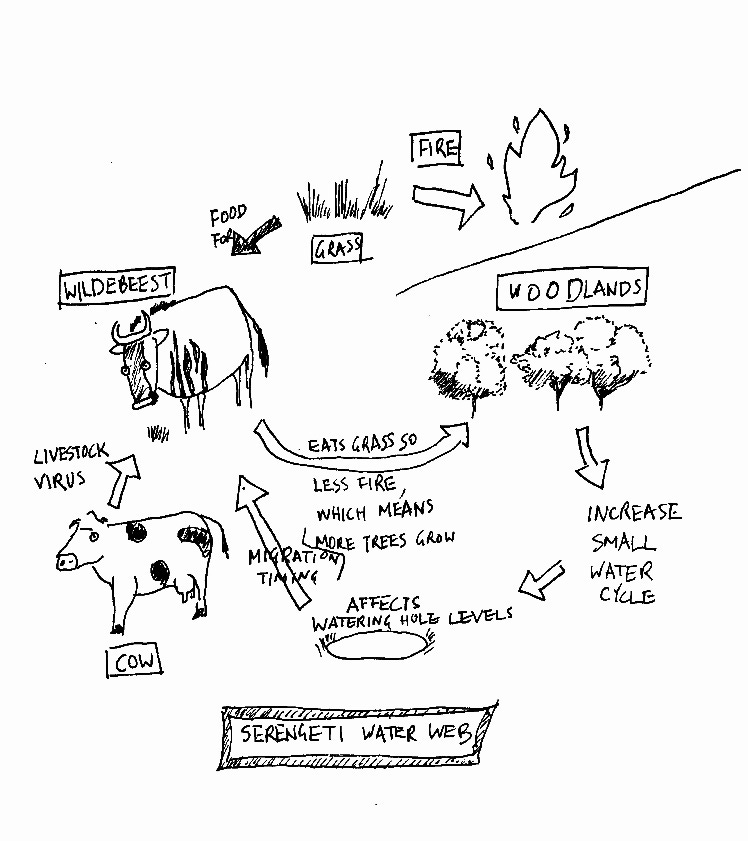 FIRE
FOOD
FOR
GRASS
WILDEBEEST
WOODLANDS
LIVESTOCK
VIRUS
EATS GRASS SO
LESS FIRE,
WHICH MEANS
MORE TREES GROW
MIGRATION
TIMING
INCREASE
SMALL
WATER
CYCLE
AFFECTS
WATERING HOLE LEVELS
COW
SERENGETI WATER WEB